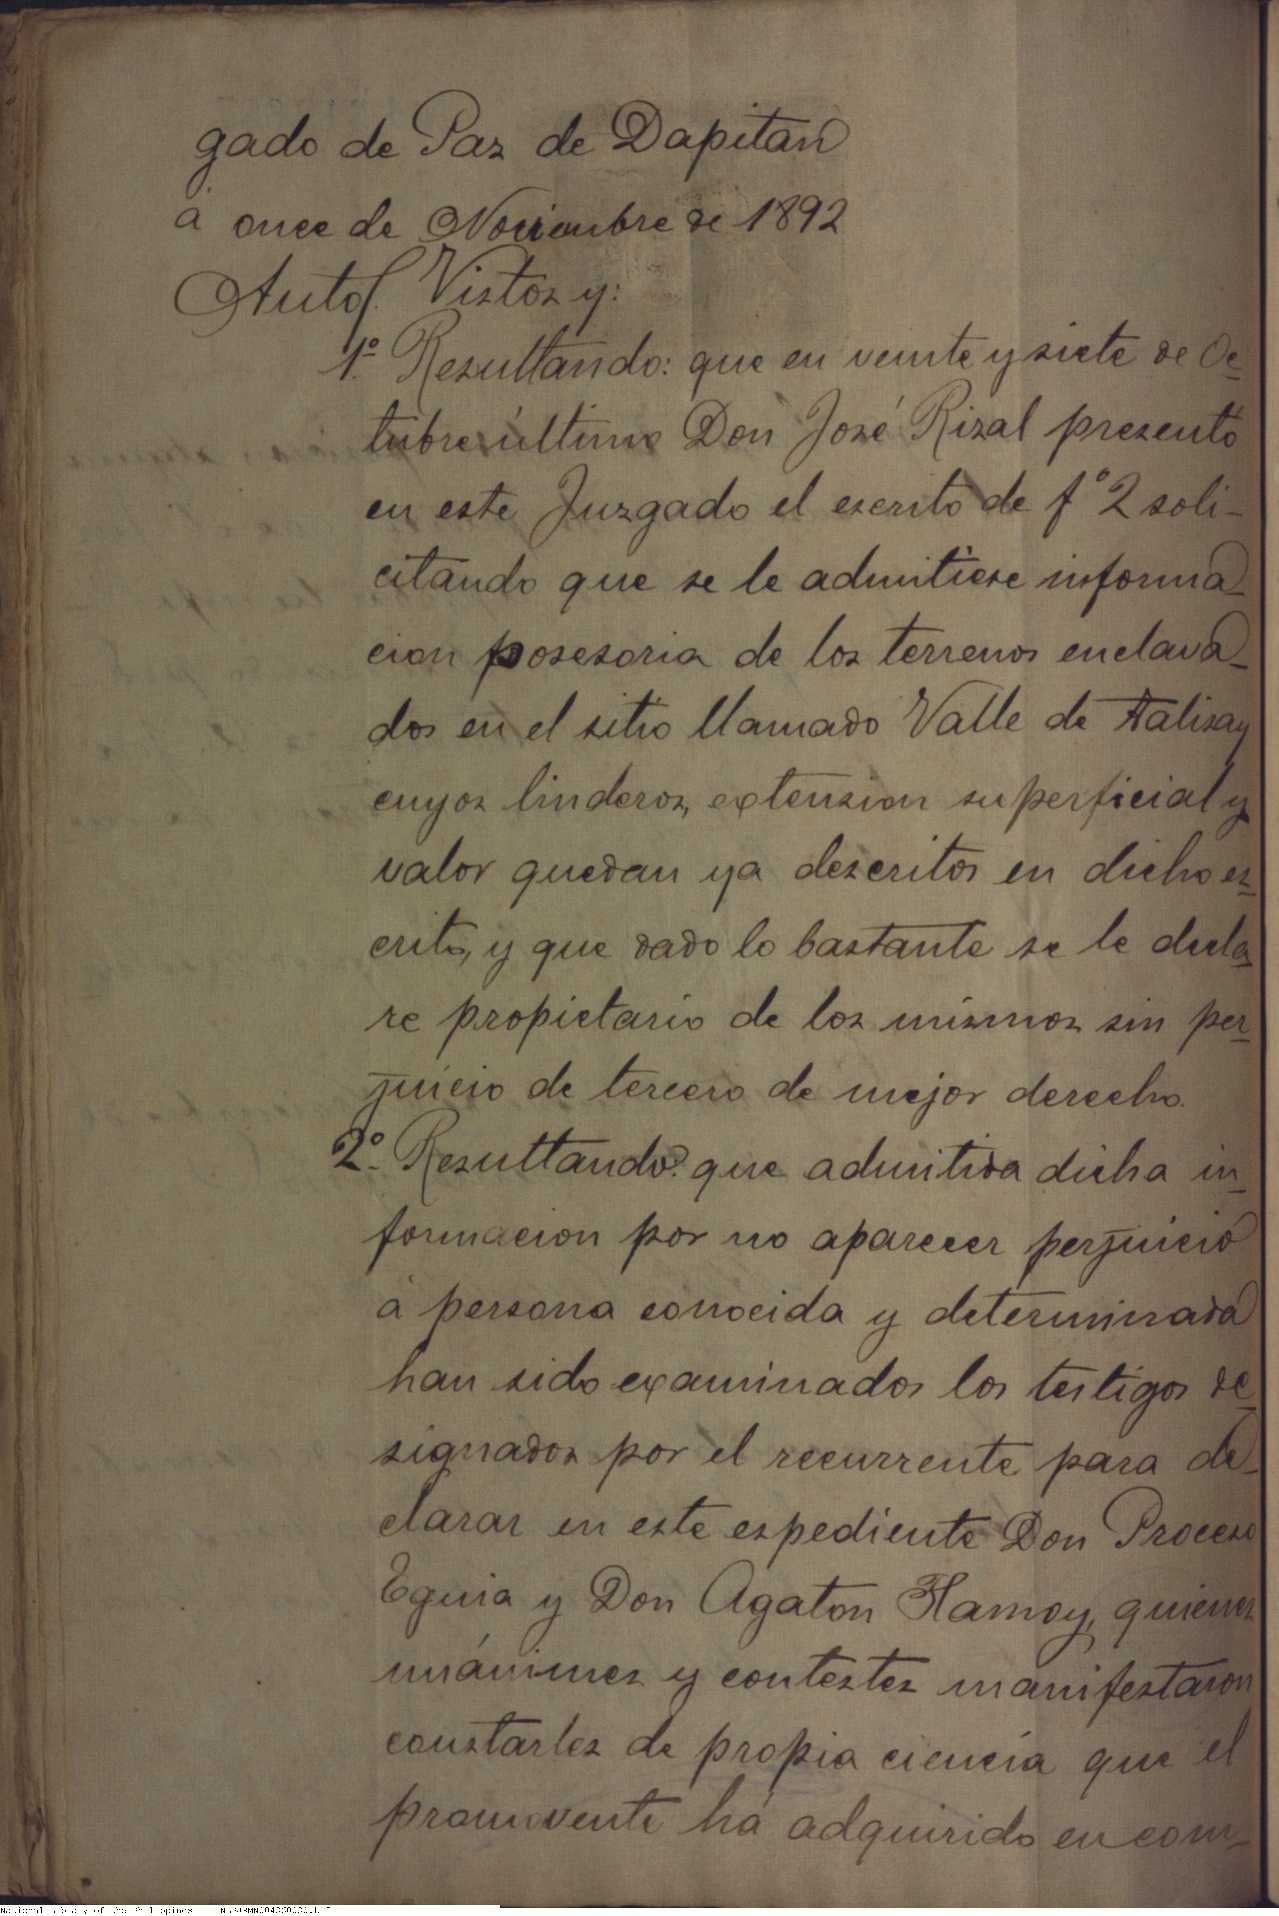 gado de Paz de Dapitan
á once de Noviembre de 1892
Auto/. Vistos y:
1º. Resultando: que en veinte y siete de Oc-
tubre último Don José Rizal presentó
en este Juzgado el escrito de fº 2 soli-
citando que se le admitiese informa-
cion posesoria de los terrenos enclava-
dos en el sitio llamado Valle de Talisay
cuyos linderos, extension superficial y
valor quedan ya descritos en dicho es-
crito, y que dado lo bastante se le decla-
re propietario de los mismos sin per-
juicio de tercero de mejor derecho.
2º. Resultando: que admitida dicha in-
formacion por no aparecer perjuicio
á persona conocida y determinada
han sido examinados los testigos de-
signados por el recurrente para de-
clarar en este espediente Don Proceso
Eguia y Don Agaton Hamoy, quienes
unánimes y contestes manifestaron
constarles de propia ciencia que el
promovente há adquirido en com-
National Library of the Philippines